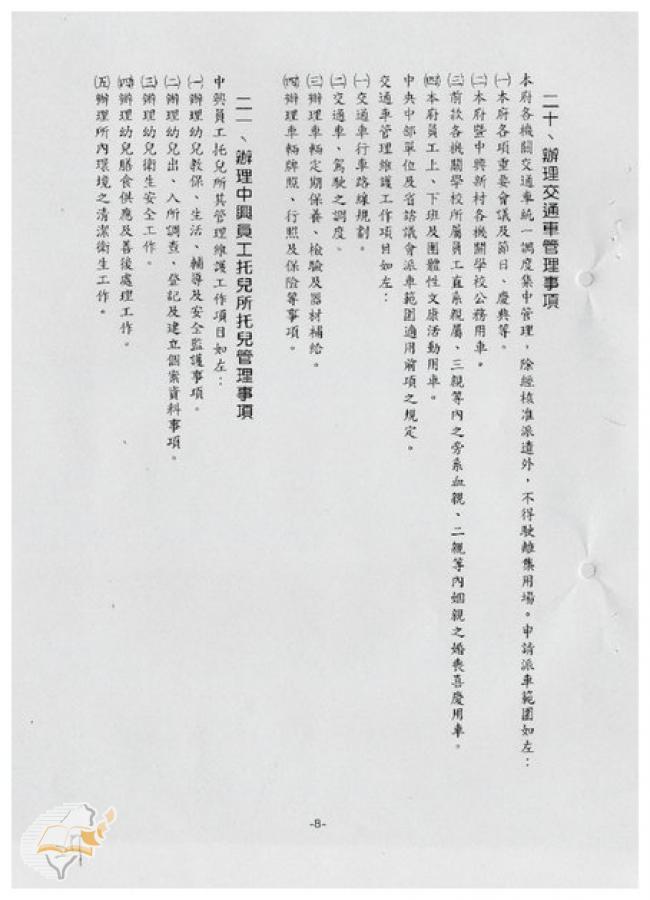 二十、辦理交通車管理事項
本府各機關交通車統一調度集中管理，除經核准派遣外，不得駛離集用場。申請派車範圍如左：
㈠本府各項重要會議及節日、慶典等。
㈡本府暨中興新村各機關學校公務用車。
㈢前款各機關學校所屬員工直系親屬、三親等內之旁系血親、二親等內姻親之婚喪喜慶用車。
㈣本府員工上、下班及團體性文康活動用車。
中央中部單位及省諮議會派車範圍適用前項之規定。
交通車管理維護工作項目如左：
㈠交通車行車路線規劃。
㈡交通車、駕駛之調度。
㈢辦理車輛定期保養、檢驗及器材補給。
㈣辦理車輛牌照、行照及保險等事項。
二一、辦理中興員工托兒所托兒管理事項
中興員工托兒所其管理維護工作項目如左：
㈠辦理幼兒教保、生活、輔導及安全監護事項。
㈡辦理幼兒出、入所調查、登記及建立個案資料事項。
㈢辦理幼兒衛生安全工作。
㈣辦理幼兒膳食供應及善後處理工作。
㈤辦理所內環境之清潔衛生工作。
-8-